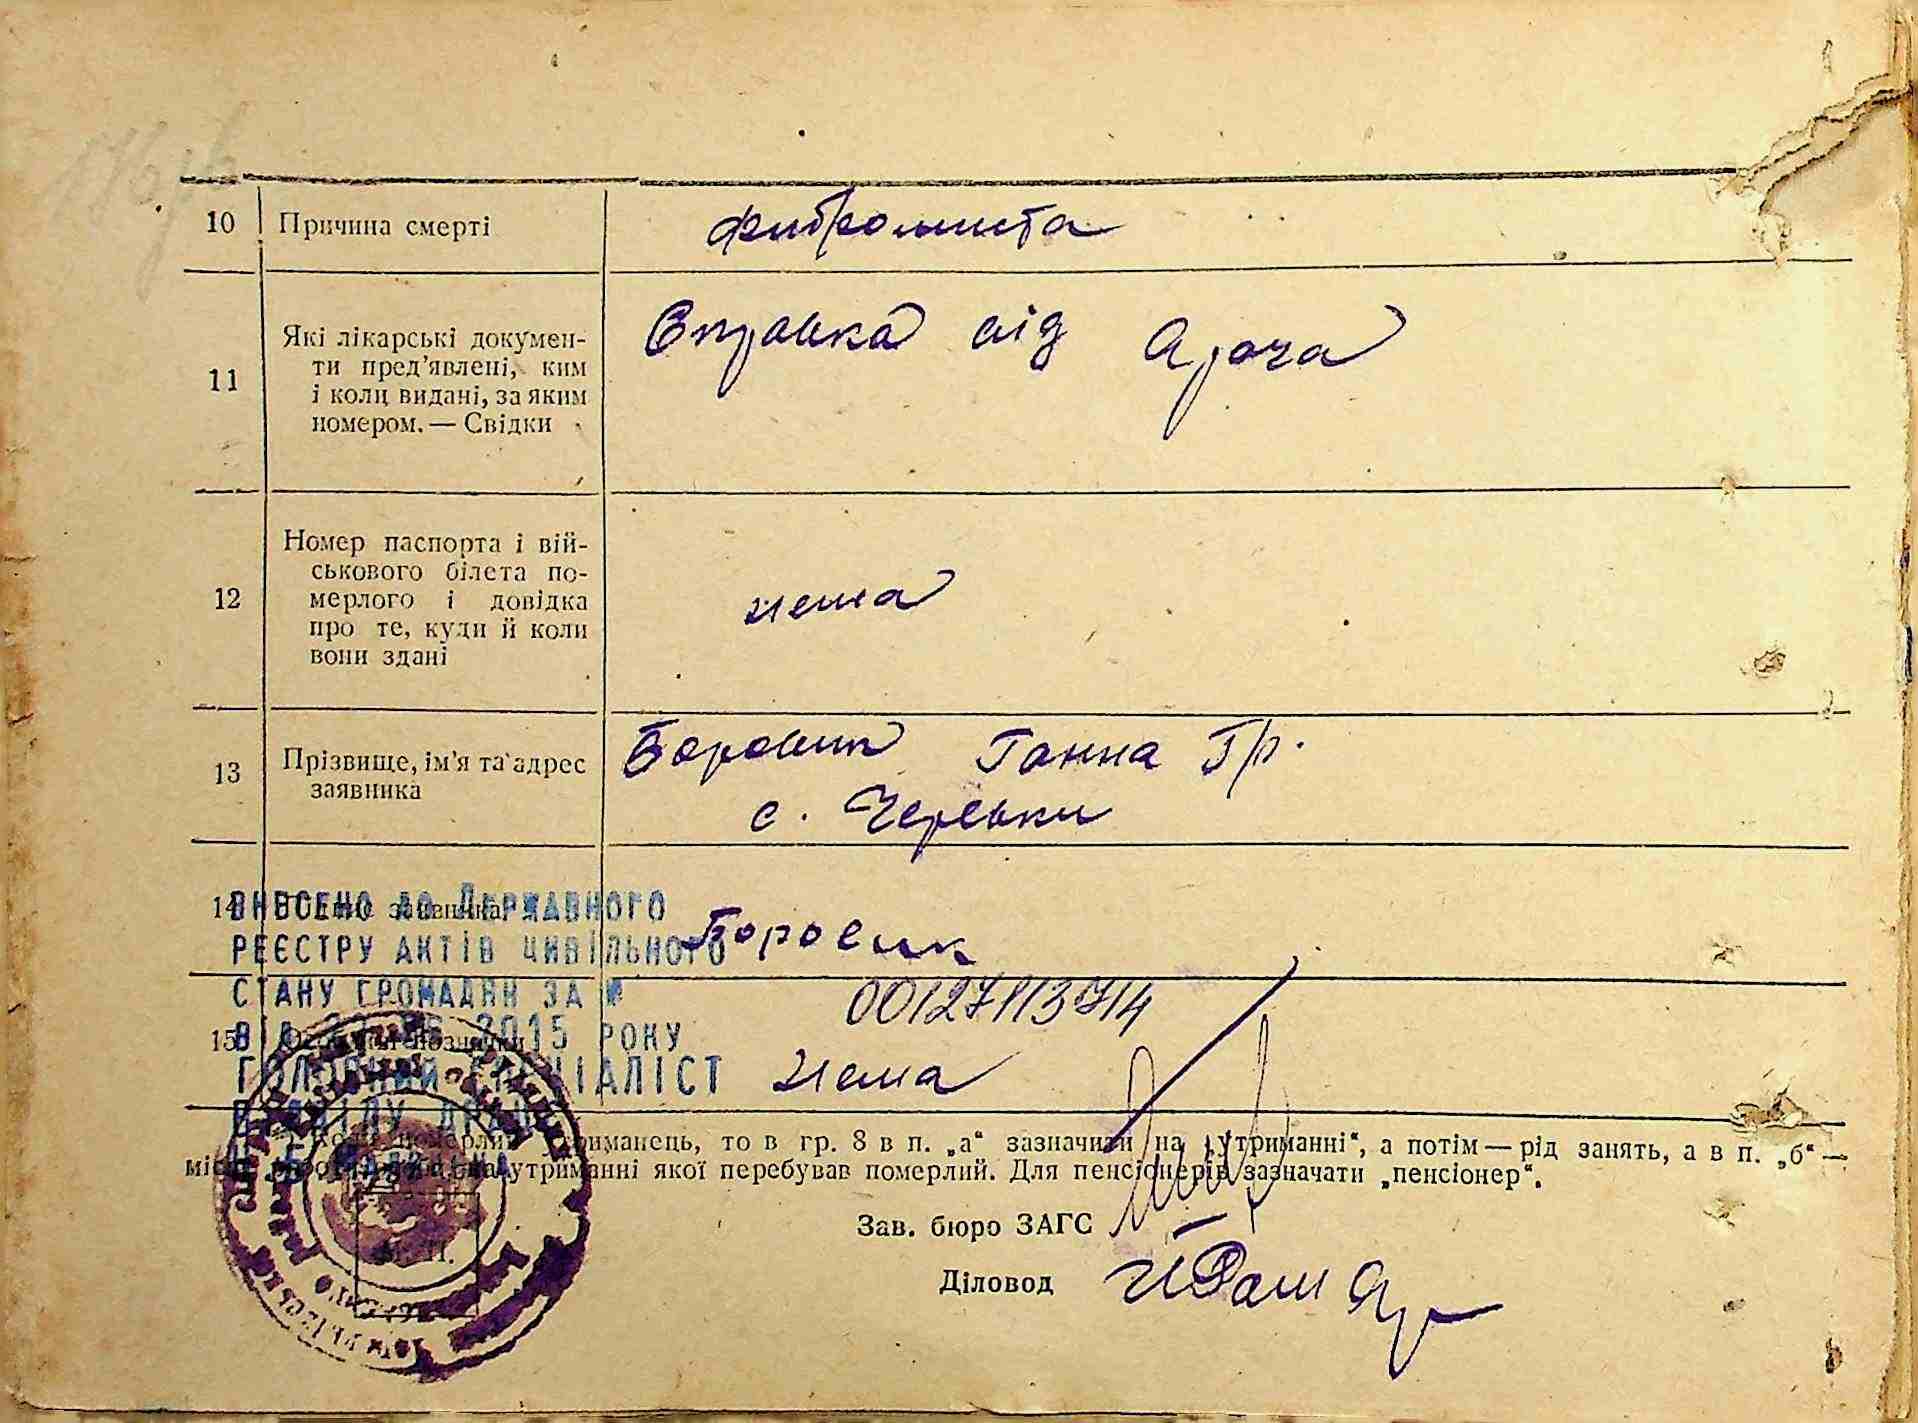 10 Причина смерті фибромиста
11 Які лікарські докумен-
ти пред'явлені, ким
і коли видані, за яким
номером. — Свідки
Справка від врача
12 Номер паспорта і вій-
ськового білета по-
мерлого і довідка
про те, куди й коли
вони здані
нема
13 Прізвище, ім'я та адрес
заявника
Боровик Ганна Гр.
с. Черевки
14 заявника
Боровик
ВНЕСЕНО ДО ДЕРЖАВНОГО
РЕЄСТРУ АКТІВ ЦИВІЛЬНОГО
СТАНУ ГРОМАДЯН ЗА №
2015 РОКУ
ГОЛОВНИЙ СПЕЦІАЛІСТ
15 Особливі позначки
нема
утриманець, то в гр. 8 в п. „а“ зазначити „на утриманні“, а потім — рід занять, а в п. „б“ —
утриманні якої перебував померлий. Для пенсіонерів зазначати „пенсіонер“.
Зав. бюро ЗАГС
Діловод
М. П.